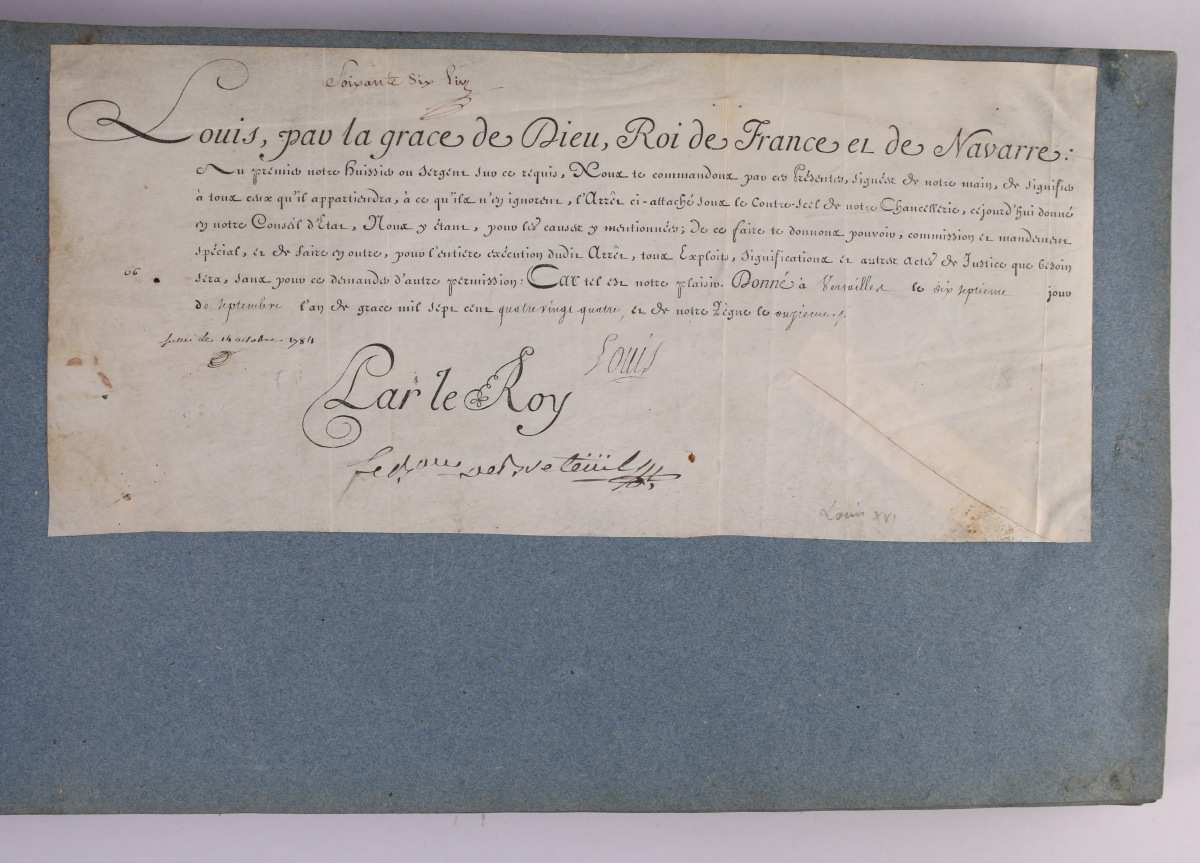 Soixante Six Liv
Louis, par la grace de Dieu, Roi de France et de Navarre:
Au premier notre Huissier ou Sergent sur ce requis, Nous te commandons par ces Présentes, signées de notre main, de signifier
à tous ceux qu'il appartiendra, à ce qu'ils n'en ignorent, l'Arrêt ci-attaché sous le Contre-scél de notre Chancellerie, cejourd'hui donné
en notre Conseil d'Etat, Nous y étant, pour les causes y mentionnées; De ce faire te donnons pouvoir, commission et mandement
spécial, et de faire en outre, pour l'entière exécution dudit Arrêt, tous Exploits, significations et autres Actes de Justice que besoin
66
sera, sans pour ce demander d'autre permission: Car tel est notre plaisir. Donné à Versailles le dix septieme jour
de septembre l'an de grace mil sept cent quatre vingt quatre, et de notre Règne le onzieme ./.
le 14 octobre 1784
Louis
Par le Roy
Le Bon de Breteüil
Louis XVI